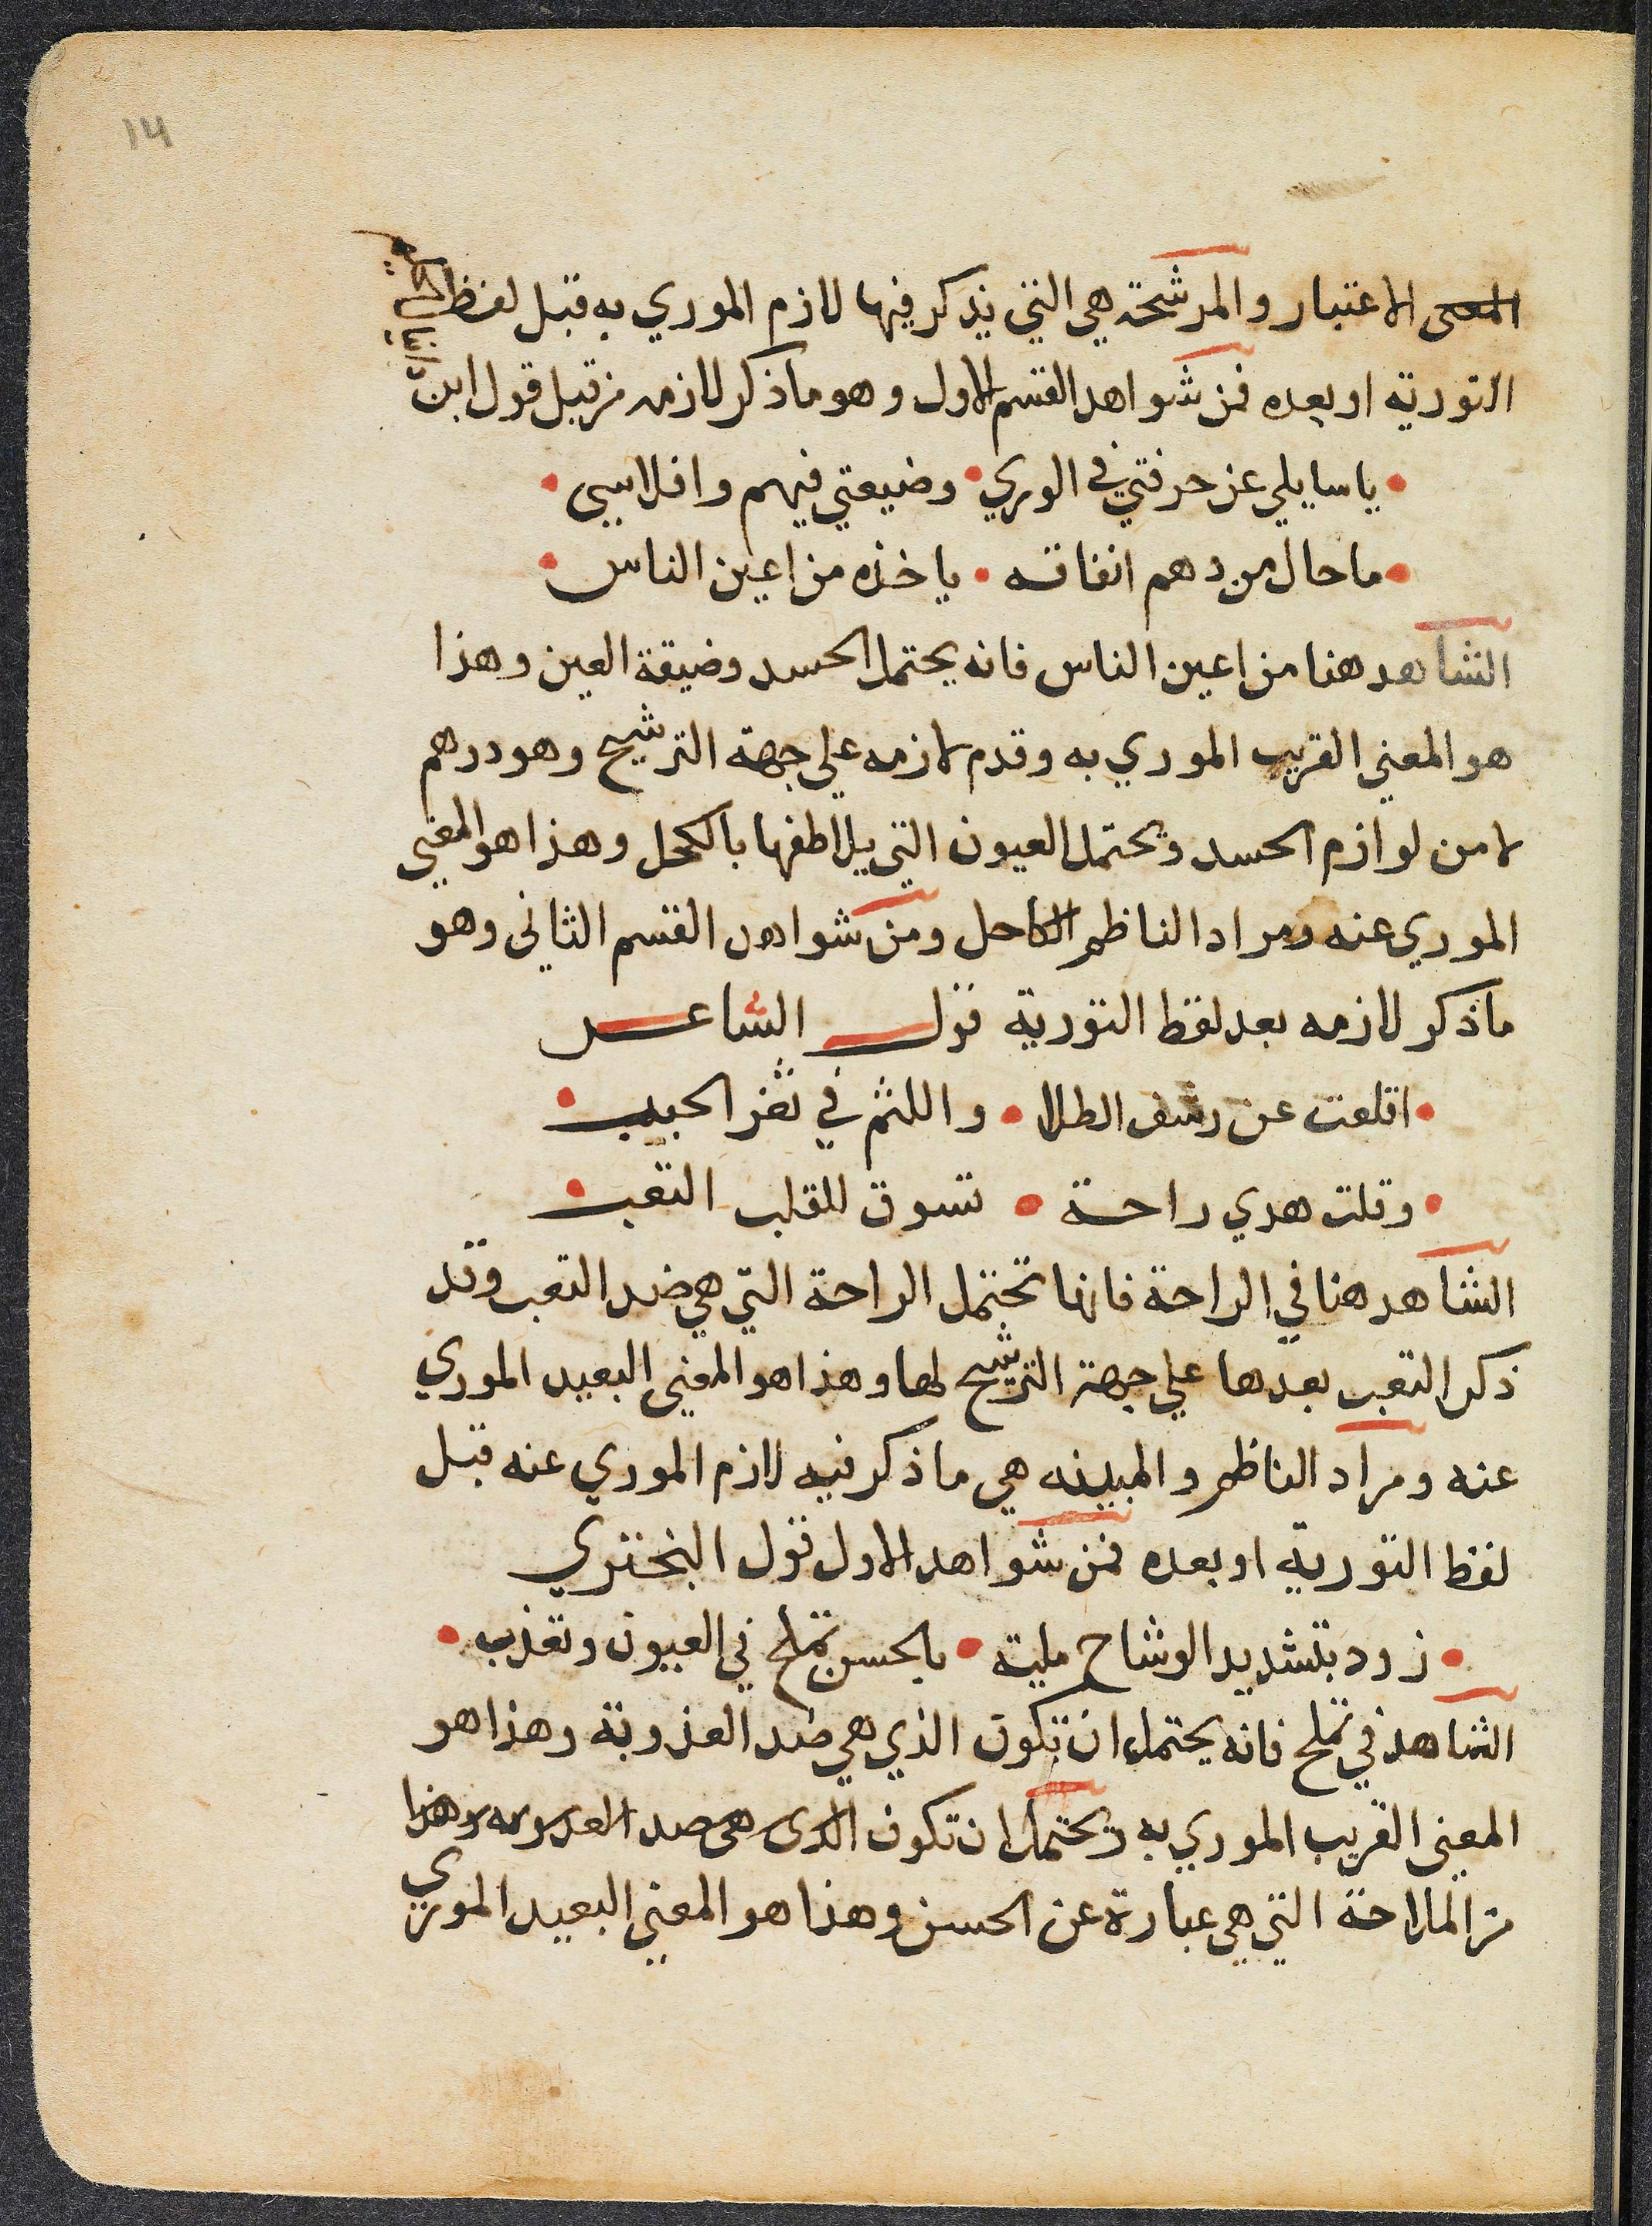 14
المعنى الاعتبار والمرشحة هي التي يذكر فيها لازم الموري به قبل لفظ
التورية او بعده فمن شواهد القسم الاول وهو ما ذكر لازمه من قبل قول ابن
يا سايلي عن حرفتي في الوري وضيعتي فيهم وافلاسي
ما حال من درهم انفاقه ياخذه من اعين الناس
الشاهد هنا من اعين الناس فانه يحتمل الحسد وضيقة العين وهذا
هو المعني القريب الموري به وقدم لازمه علي جهة الترشيح وهو درهم
لا من لوازم الحسد ويحتمل العيون التي يلاطفها بالكحل وهذا هو المعني
الموري عنه ومراد الناظم الكاحل ومن شواهد القسم الثاني وهو
ما ذكر لازمه بعد لفظ التورية قول الشاعر
اقلعت عن رشف الطلا واللثم في ثغر الحبيب
وقلت هدي راحة تسوق للقلب التعب
الشاهد هنا في الراحة فانها تحتمل الراحة التي هي ضد التعب وقد
ذكر التعب بعدها علي جهة الترشيح لها وهذا هو المعني البعيد الموري
عنه ومراد الناظم والمبينه هي ما ذكر فيه لازم الموري عنه قبل
لفظ التورية او بعده فمن شواهد الاول قول البختري
زود بتشديد الوشاح ملية بالحسن تملح في العيون وتعذب
الشاهد في تملح فانه يحتمل ان تكون الذي هي ضد العذوبة وهذا هو
المعني القريب الموري به ويحتمل ان تكون الذى هى ضد العذوبه وهذا
من الملاحة التي هي عبارة عن الحسن وهذا هو المعني البعيد الموري